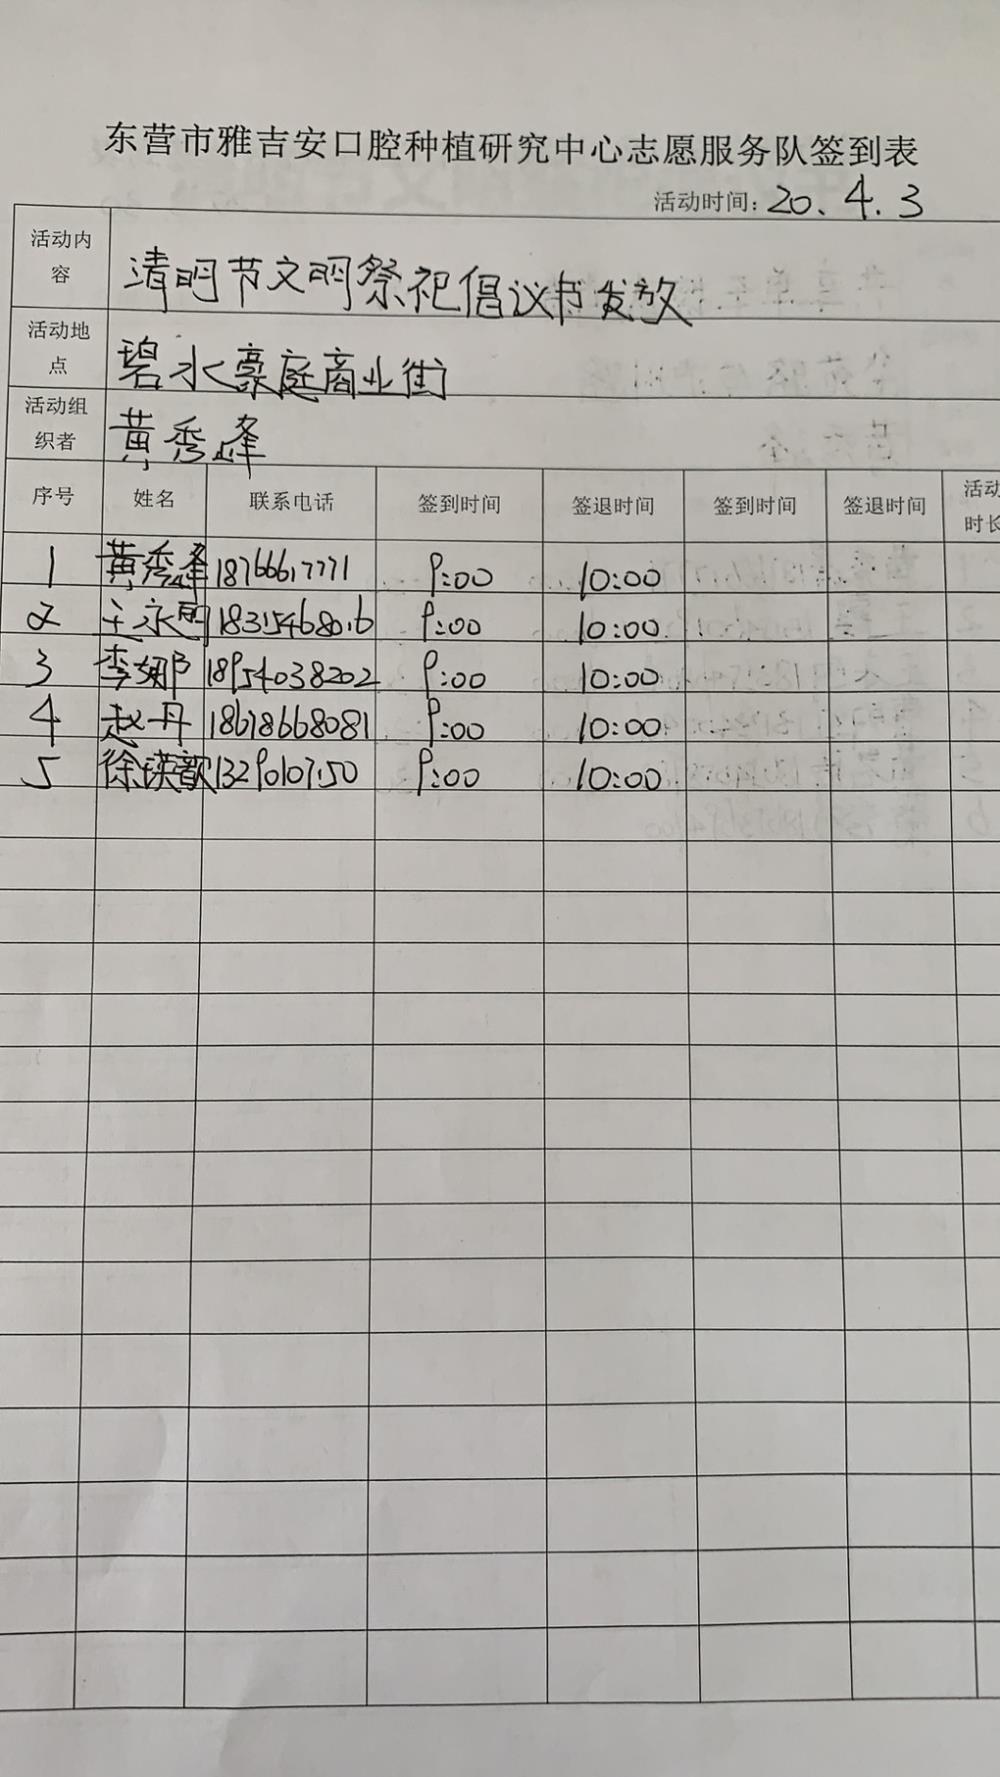 东营市雅吉安口腔种植研究中心志愿服务队签到表
活动时间：20.4.3
活动内容 清明节文明祭祀倡议书发放
活动地点 碧水豪庭商业街
活动组织者 黄秀峰
序号 姓名 联系电话 签到时间 签退时间 签到时间 签退时间 活动时长
1 黄秀峰 18766617771 9:00 10:00
2 王永 18315468016 9:00 10:00
3 李娜 18954038202 9:00 10:00
4 赵丹 18678668081 9:00 10:00
5 徐瑛歆 13290107150 9:00 10:00